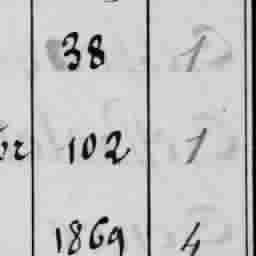 38 1
102 1
1869 4